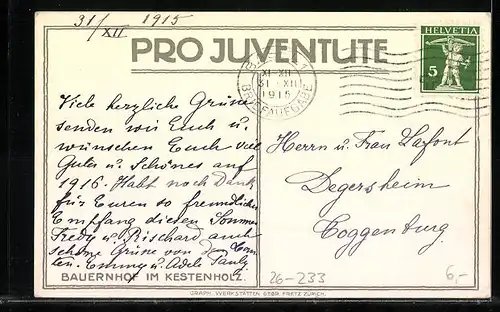 31/XII 1915
PRO JUVENTUTE
HELVETIA
5
XI-XII
31 XII
1915
BRIEFAUFGABE
Viele herzliche Grüsse
senden wir Euch u.
wünschen Euch viel
Gutes u. Schönes auf
1916. Habt noch Dank
für Euren so freundlichen
Empfang diesen Sommer
Fredy u. Rischard auch
schöne Grüse von
Emmy u. Adele
Herrn u. Frau Larfont
Degersheim
Toggenburg
BAUERNHOF IM KESTENHOLZ.
26-233
6,-
GRAPH. WERKSTÄTTEN GEBR. FRETZ ZÜRICH.